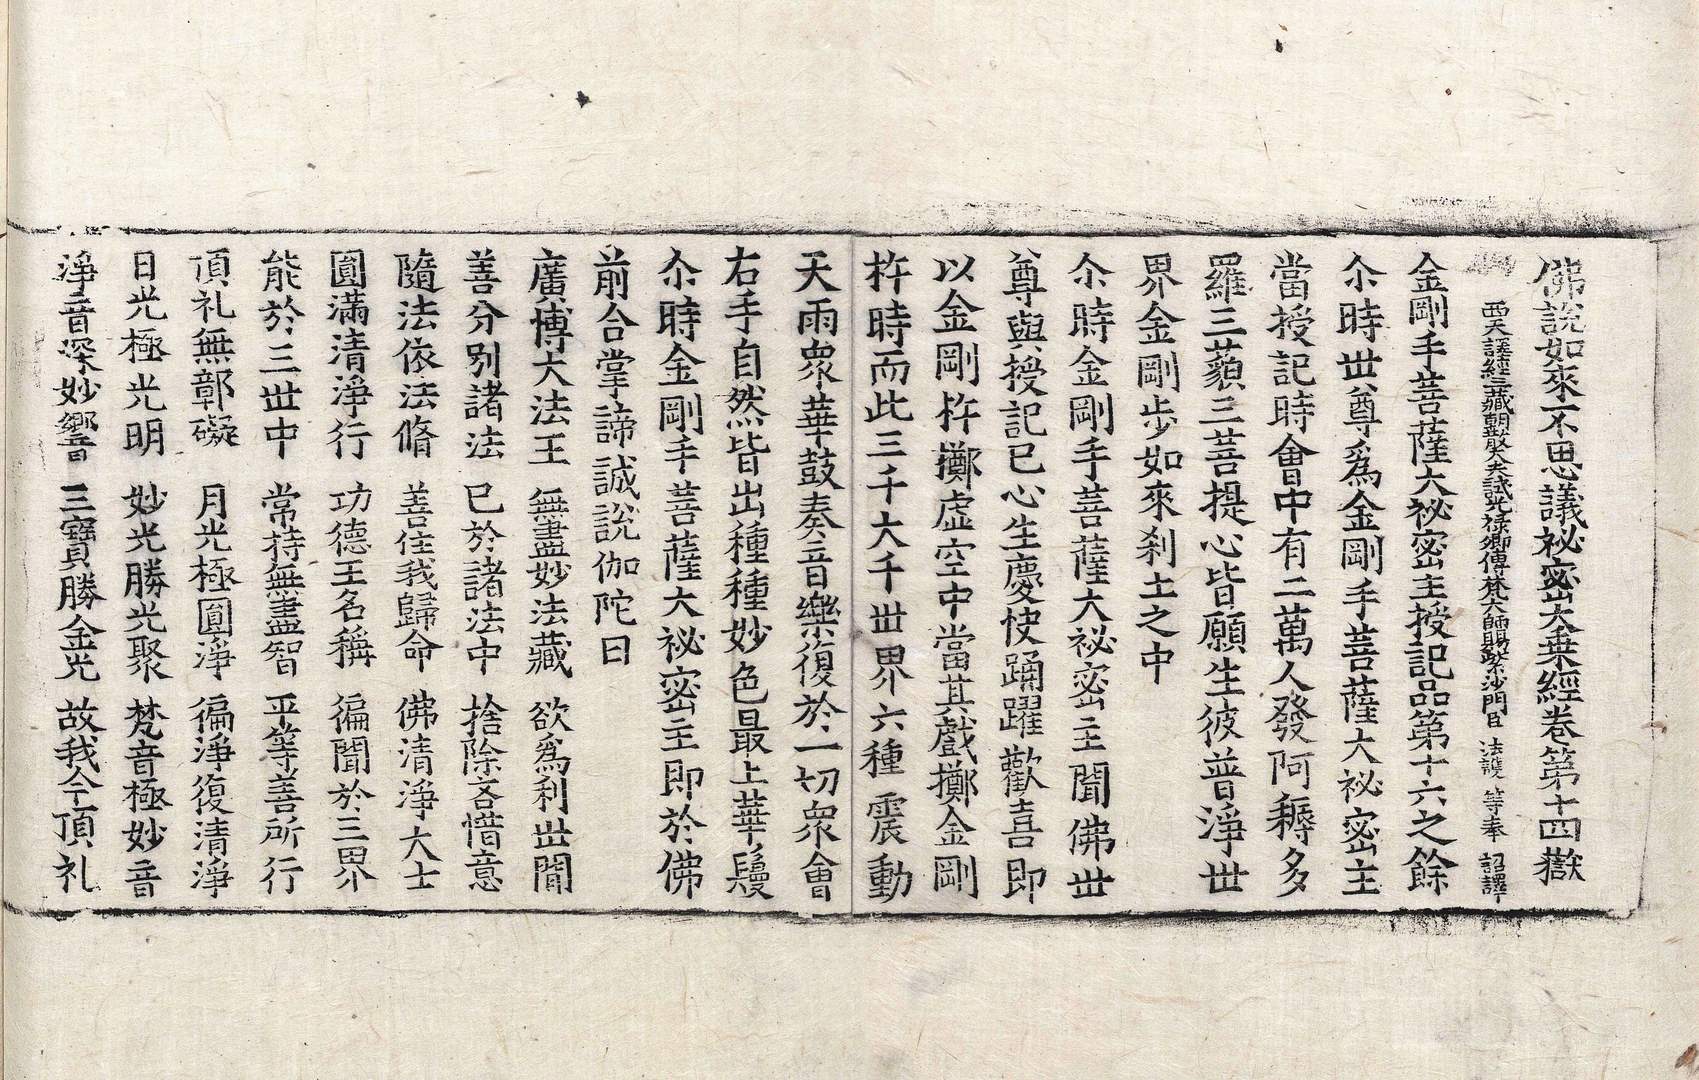 佛說如來不思議祕密大乗經卷第十四 嶽
西天譯經三藏朝散大夫試光祿卿傳梵大師賜紫沙門臣 法護 等奉 詔譯
金剛手菩薩大祕密主授記品第十六之餘
尒時世尊爲金剛手菩薩大祕密主
當授記時會中有二萬人發阿耨多
羅三藐三菩提心皆願生彼普淨世
界金剛步如來刹土之中
尒時金剛手菩薩大祕密主聞佛世
尊與授記已心生慶快踊躍歡喜即
以金剛杵擲虛空中當其戲擲金剛
杵時而此三千大千世界六種震動
天雨衆華鼓奏音樂復於一切衆會
右手自然皆出種種妙色最上華鬘
尒時金剛手菩薩大祕密主即於佛
前合掌諦誠說伽陀曰
廣博大法王 無盡妙法藏 欲爲利世閒
善分別諸法 已於諸法中 捨除吝惜意
隨法依法脩 善住我歸命 佛清淨大士
圓滿清淨行 功德王名稱 徧聞於三界
能於三世中 常持無盡智 平等善所行
頂礼無鄣礙 月光極圓淨 徧淨復清淨
日光極光明 妙光勝光聚 梵音極妙音
淨音深妙響 三寶勝金光 故我今頂礼